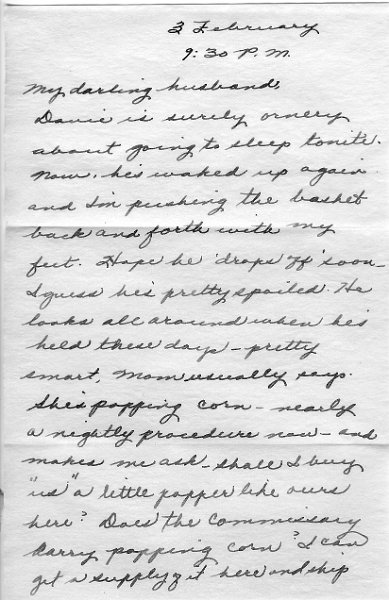 3 February
9:30 P.M.
My darling husband,
Davie is surely ornery
about going to sleep tonite.
Now, he's waked up again
and I'm pushing the basket
back and forth with my
feet. Hope he "drops off" soon -
I guess he's pretty spoiled. He
looks all around when he's
held these days - pretty
smart, Mom usually says.
She's popping corn - nearly
a nightly procedure now - and
makes me ask - shall I buy
"us" a little popper like ours
here? Does the commissary
karry popping corn? I can
get a supply of it here and ship